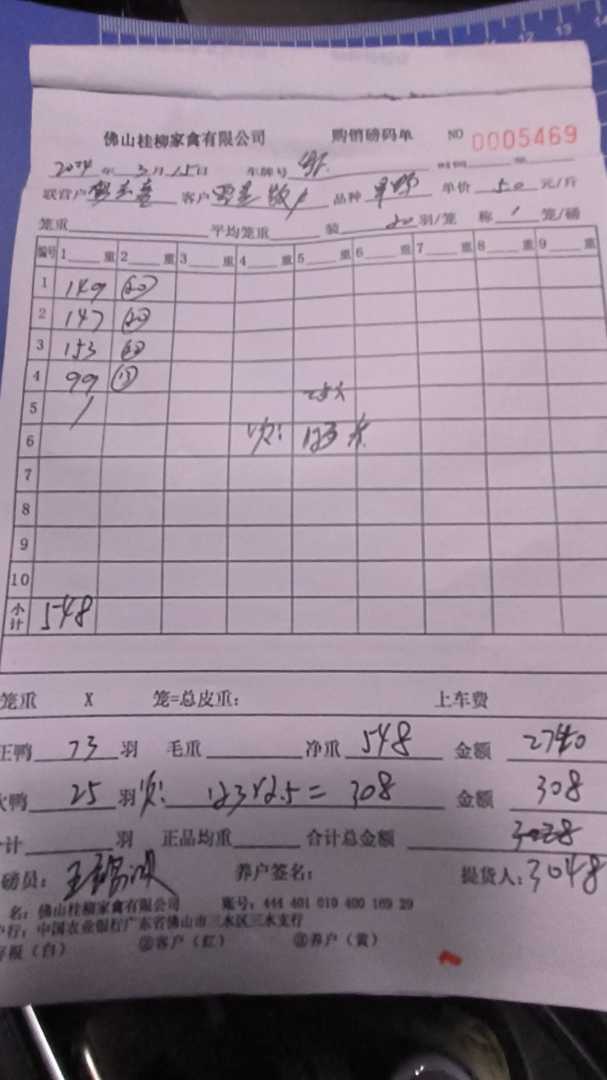 佛山桂柳家禽有限公司 购销磅码单 NO 0005469
2024年 3月15日 车牌号
联营户 客户 品种 单价 50 元/斤
笼重 平均笼重 装 20 羽/笼 称 1 笼/磅
编号 1 重 2 重 3 重 4 重 5 重 6 重 7 重 8 重 9
1 149 (20)
2 147 (20)
3 153 (20)
4 99 (13)
5 / 25只
6 次: 123斤
7
8
9
10
小计 548
笼重 X 笼=总皮重: 上车费
正鸭 73 羽 毛重 净重 548 金额 2740
次鸭 25 羽 次: 123×2.5= 308 金额 308
计 羽 正品均重 合计总金额
磅员: 养户签名: 提货人: 3048
名: 佛山桂柳家禽有限公司 账号: 444 401 010 400 169 29
户行: 中国农业银行广东省佛山市三水区三水支行
(白) ②客户(红) ③养户(黄)